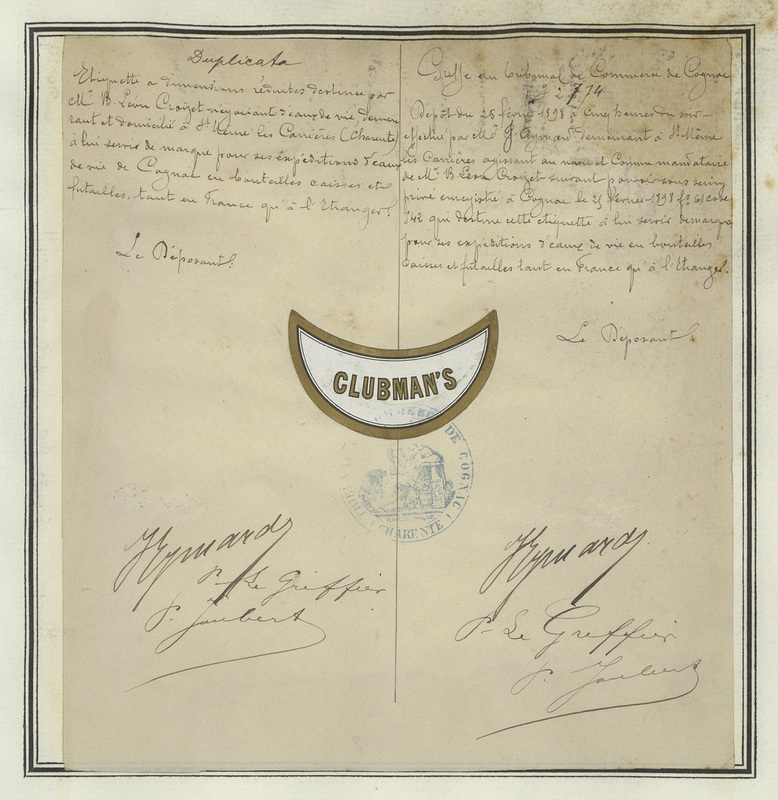 Duplicata
Etiquette a dimensions réduites destinée par
Mr B. Léon Croizet négociant d'eaux de vie, demeu
rant et domicilié à St Même les Carrières (Charente)
à lui servir de marque pour ses expéditions d'eaux
de vie de Cognac en bouteilles caisses et
futailles, tant en France qu'à l'Etranger.
Le Déposant.
Greffe du tribunal de Commerce de Cognac
774
Dépôt du 28 février 1898 à cinq heures du soir
effectué par Mr J. Aymard demeurant à St Même
les Carrières agissant au nom et comme mandataire
de Mr B. Léon Croizet suivant pouvoir sous seing
privé enregistré à Cognac le 25 février 1898 fo 61 case
742 qui destine cette étiquette à lui servir de marque
pour ses expéditions d'eaux de vie en bouteilles
caisses et futailles tant en France qu'à l'Etranger.
Le Déposant
CLUBMAN'S
COMMERCE DE COGNAC
(CHARENTE)
JAymard
P. Le Greffier
P. Joubert
JAymard
P. Le Greffier
P. Joubert